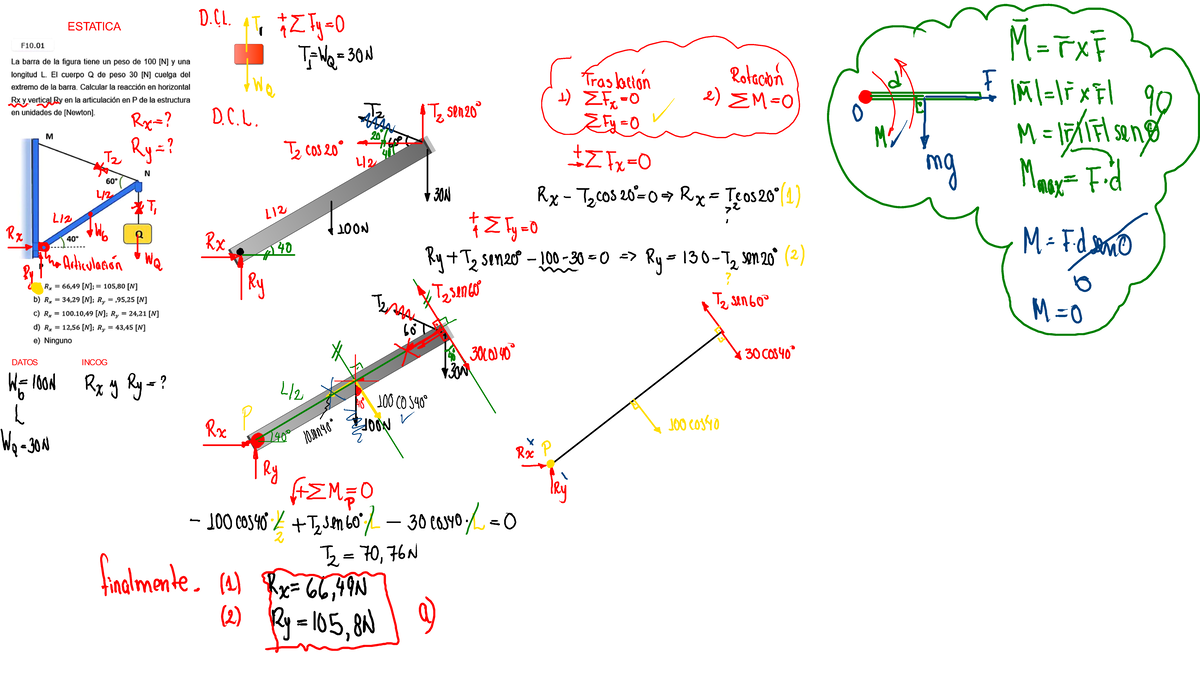 ESTATICA
F10.01
La barra de la figura tiene un peso de 100 [N] y una
longitud L. El cuerpo Q de peso 30 [N] cuelga del
extremo de la barra. Calcular la reacción en horizontal
Rx y vertical Ry en la articulación en P de la estructura
en unidades de [Newton].
Rx=?
Ry=?
M
T2
60°
N
L/2
T1
L/2
Wb
Q
Rx
40°
WQ
Articulación
Ry
Rx = 66,49 [N]; = 105,80 [N]
b) Rx = 34,29 [N]; Ry = ,95,25 [N]
c) Rx = 100.10,49 [N]; Ry = 24,21 [N]
d) Rx = 12,56 [N]; Ry = 43,45 [N]
e) Ninguno
DATOS
INCOG
Wb = 100N
Rx y Ry = ?
L
WQ = 30N
D.C.L.
T1
+↑ΣFy=0
T1=WQ=30N
WQ
D.C.L.
T2
T2 sen20°
20°
60°
T2 cos20°
40
L/2
30N
L/2
100N
Rx
40
Ry
1) Traslación
ΣFx=0
ΣFy=0
2) Rotación
ΣM=0
+→ΣFx=0
Rx - T2 cos20°=0 ⇒ Rx = T2 cos20° (1)
?
+↑ΣFy=0
Ry + T2 sen20° - 100 - 30 = 0 => Ry = 130 - T2 sen20° (2)
?
T2
T2 sen60°
60°
40°
30cos40°
30N
L/2
40°
100 cos40°
100N
P
Rx
40°
Ry
T2 sen60°
30cos40°
100cos40
Rx
P
Ry
+ΣMp=0
- 100 cos40°·L/2 + T2 sen60°·L - 30 cos40·L = 0
T2 = 70,76N
finalmente.
(1) Rx= 66,49N
(2) Ry = 105,8N
a)
d
F
O
M
mg
M̄ = r̄ x F̄
|M̄| = |r̄ x F̄|
90
M = |r̄||F̄| senθ
Mmax = F·d
M = F·d senθ
0
M = 0